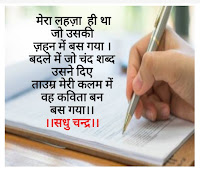 मेरा लहज़ा ही था
जो उसकी
ज़हन में बस गया ।
बदले में जो चंद शब्द
उसने दिए
ताउम्र मेरी कलम में
वह कविता बन
बस गया।।
।।सधु चन्द्र।।